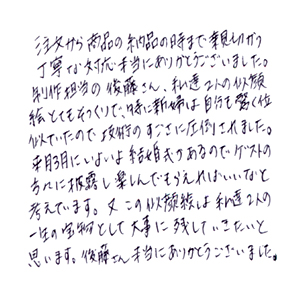 注文から商品の納品の時まで親切かつ
丁寧な対応本当にありがとうございました。
制作担当の後藤さん、私達2人の似顔
絵とてもそっくりで、特に新婦は自分も驚く位
似ていたので技術のすごさに圧倒されました。
来月3日にいよいよ結婚式があるのでゲストの
方々に披露し楽しんでもらえればいいなと
考えています。又この似顔絵は私達2人の
一生の宝物として大事に残していきたいと
思います。後藤さん本当にありがとうございました。